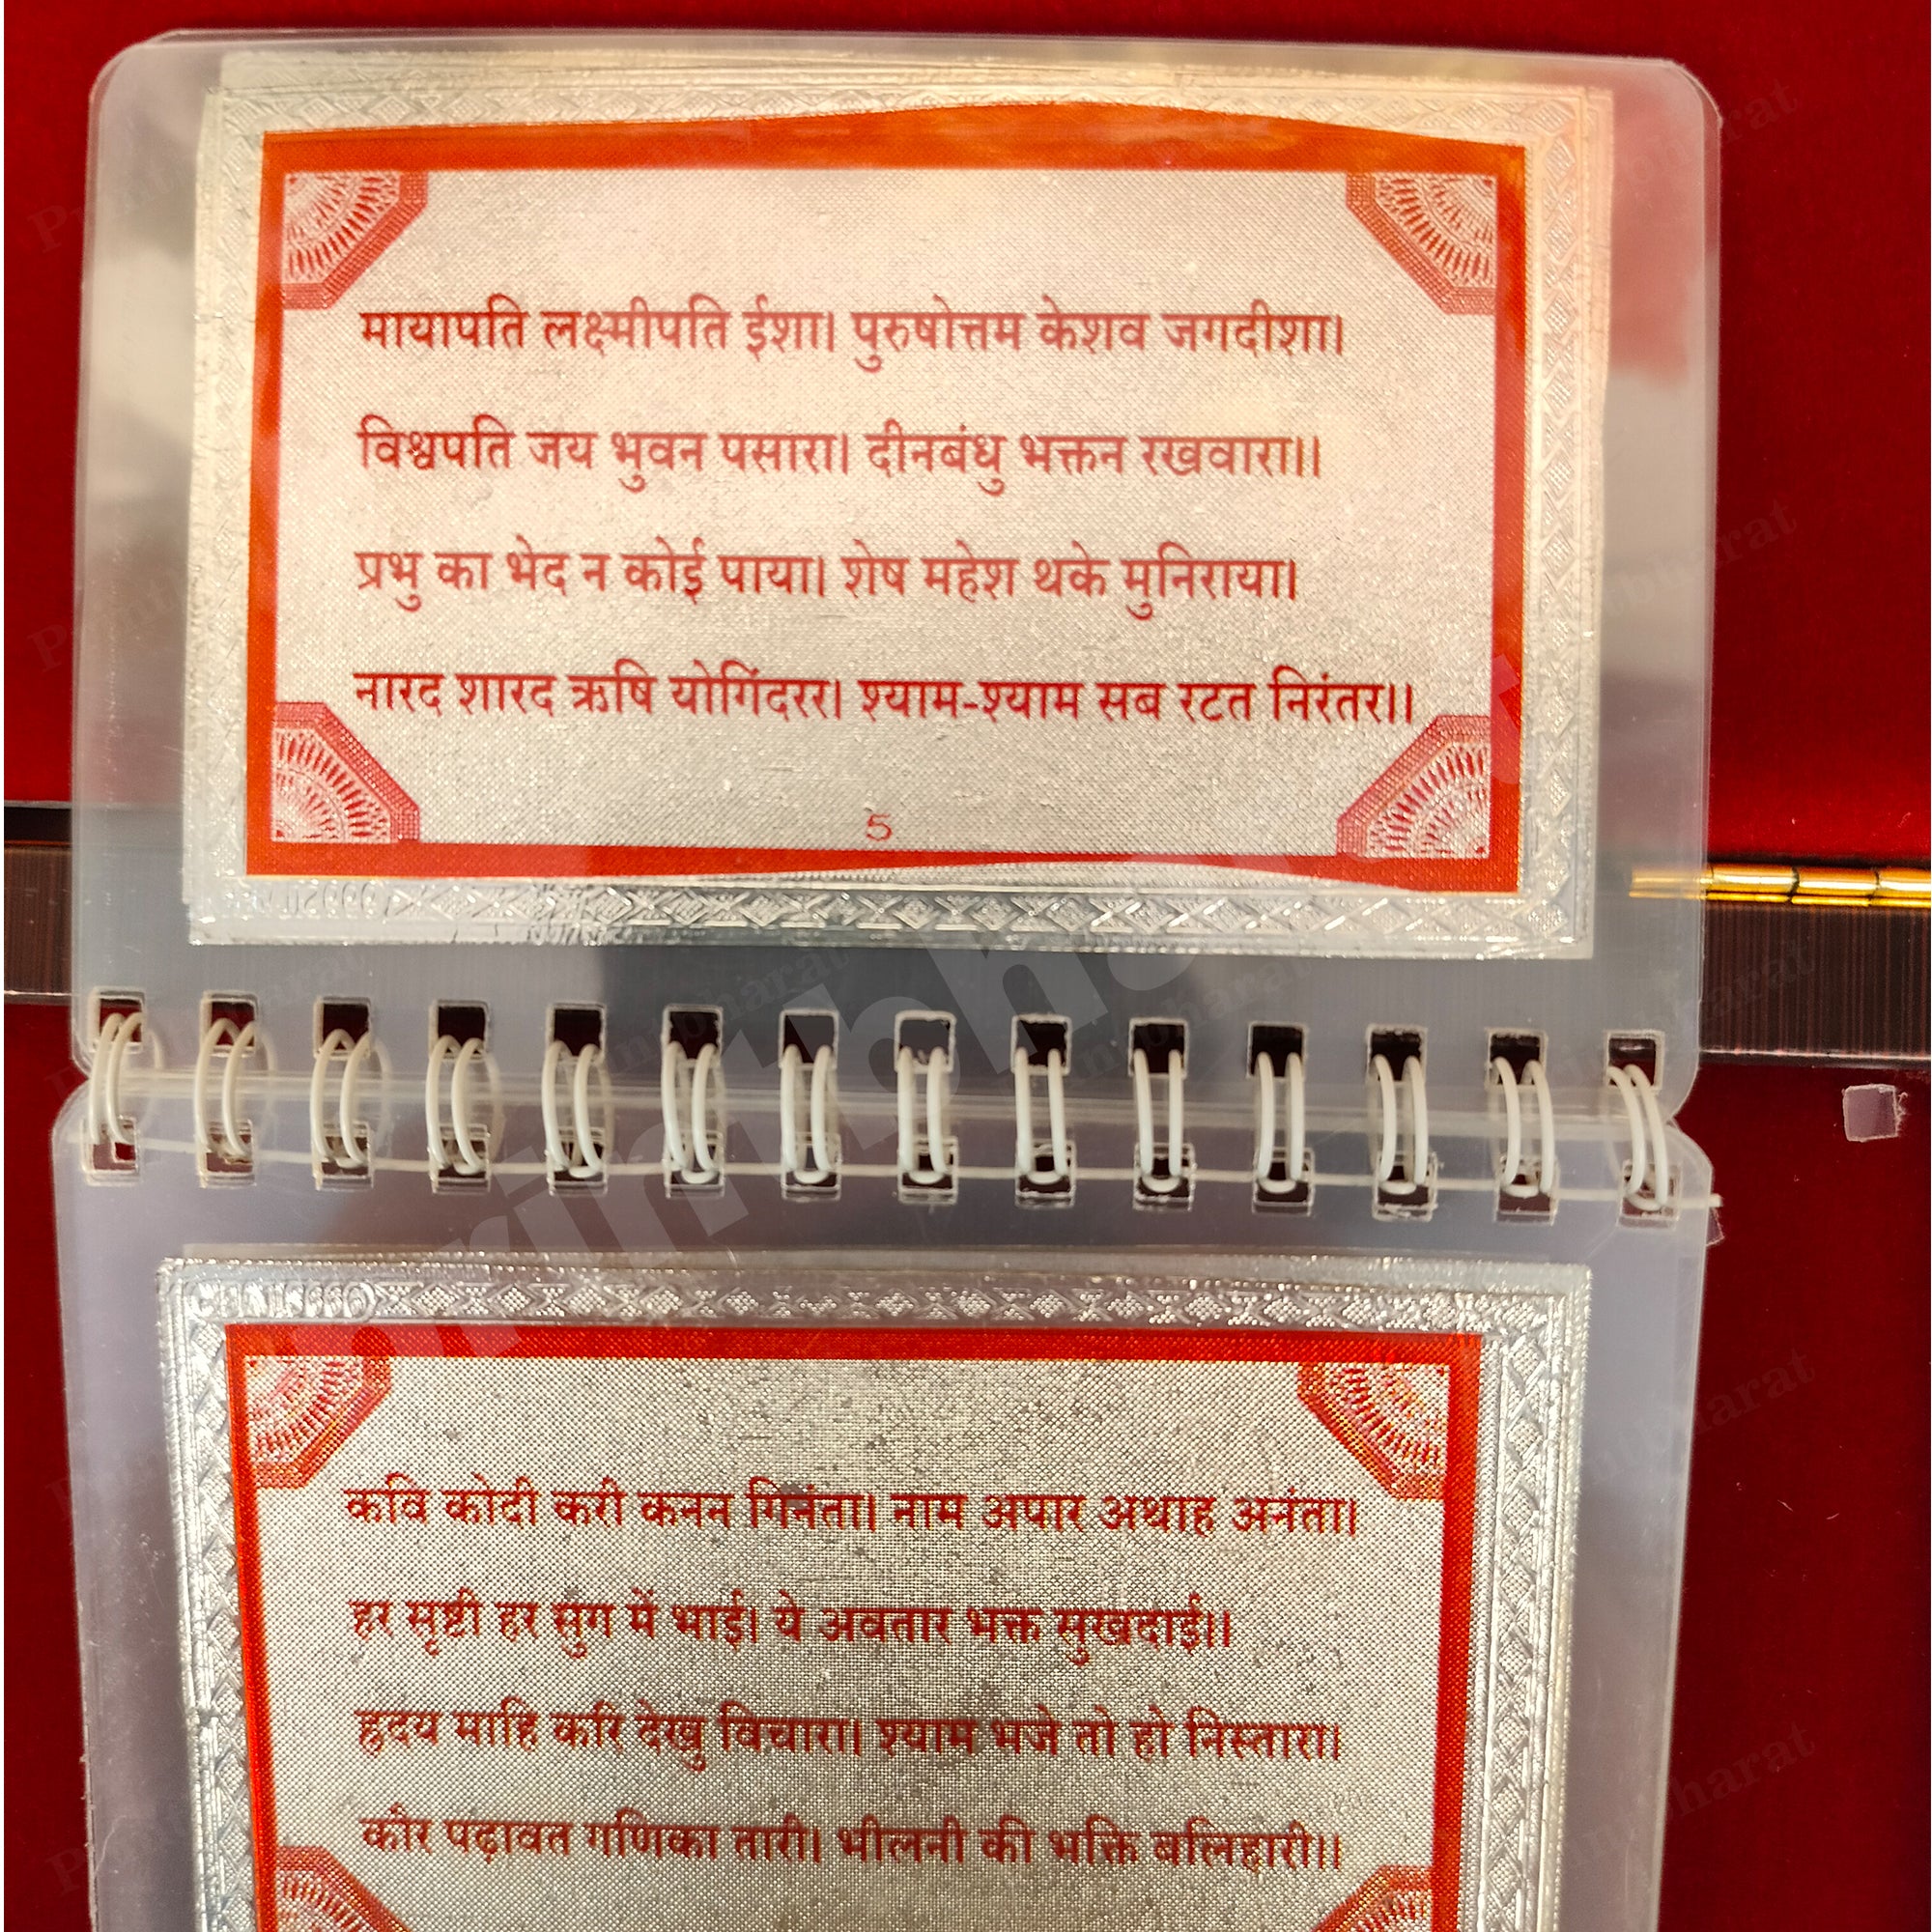 मायापति लक्ष्मीपति ईशा। पुरुषोत्तम केशव जगदीशा।
विश्वपति जय भुवन पसारा। दीनबंधु भक्तन रखवारा।।
प्रभु का भेद न कोई पाया। शेष महेश थके मुनिराया।
नारद शारद ऋषि योगिंदरर। श्याम-श्याम सब रटत निरंतर।।
5
कवि कोदी करी कनन गिनंता। नाम अपार अथाह अनंता।
हर सृष्टी हर सुग में भाई। ये अवतार भक्त सुखदाई।।
हृदय माहि करि देखु विचारा। श्याम भजे तो हो निस्तारा।
कौर पढ़ावत गणिका तारी। भीलनी की भक्ति बलिहारी।।